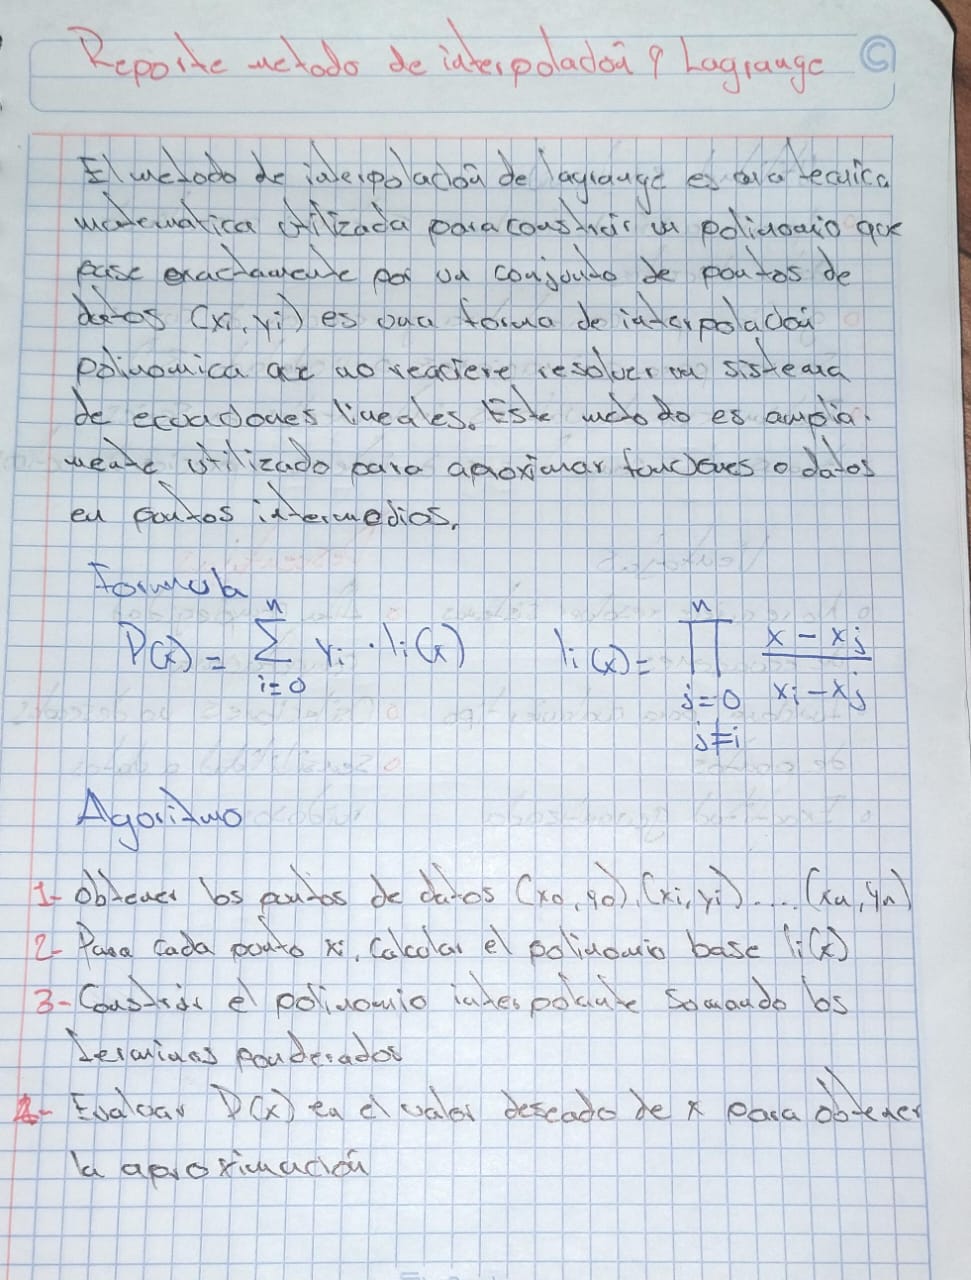 Reporte metodo de interpolación y Lagrange C
El metodo de interpolación de lagrange es una tecnica
matematica utilizada para construir un polinomio que
pase exactamente por un conjunto de puntos de
datos (xi, yi) es una forma de interpolación
polinomica que no requiere resolver un sistema
de ecuaciones lineales. Este metodo es amplia-
mente utilizado para aproximar funciones o datos
en puntos intermedios.
Formula
P(x) = n∑i=0 yi · li(x) li(x) = n∏j=0 j≠i (x - xj)/(xi - xj)
Agoritmo
1- Obtener los puntos de datos (x0, y0), (xi, yi) .... (xn, yn)
2- Para cada punto xi, Calcular el polinomio base li(x)
3- Construir el polinomio interpolante Sumando los
terminos ponderados
4- Evaluar P(x) en el valor deseado de x para obtener
la aproximación